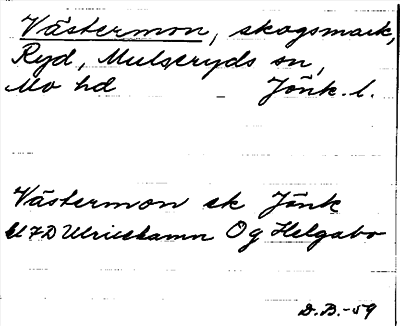 Västermon, skogsmark,
Ryd, Mulseryds sn,
Mo hd Jönk. l.
Västermon sk Jönk
7D Ulricehamn Og Helgabo
D.B.-59